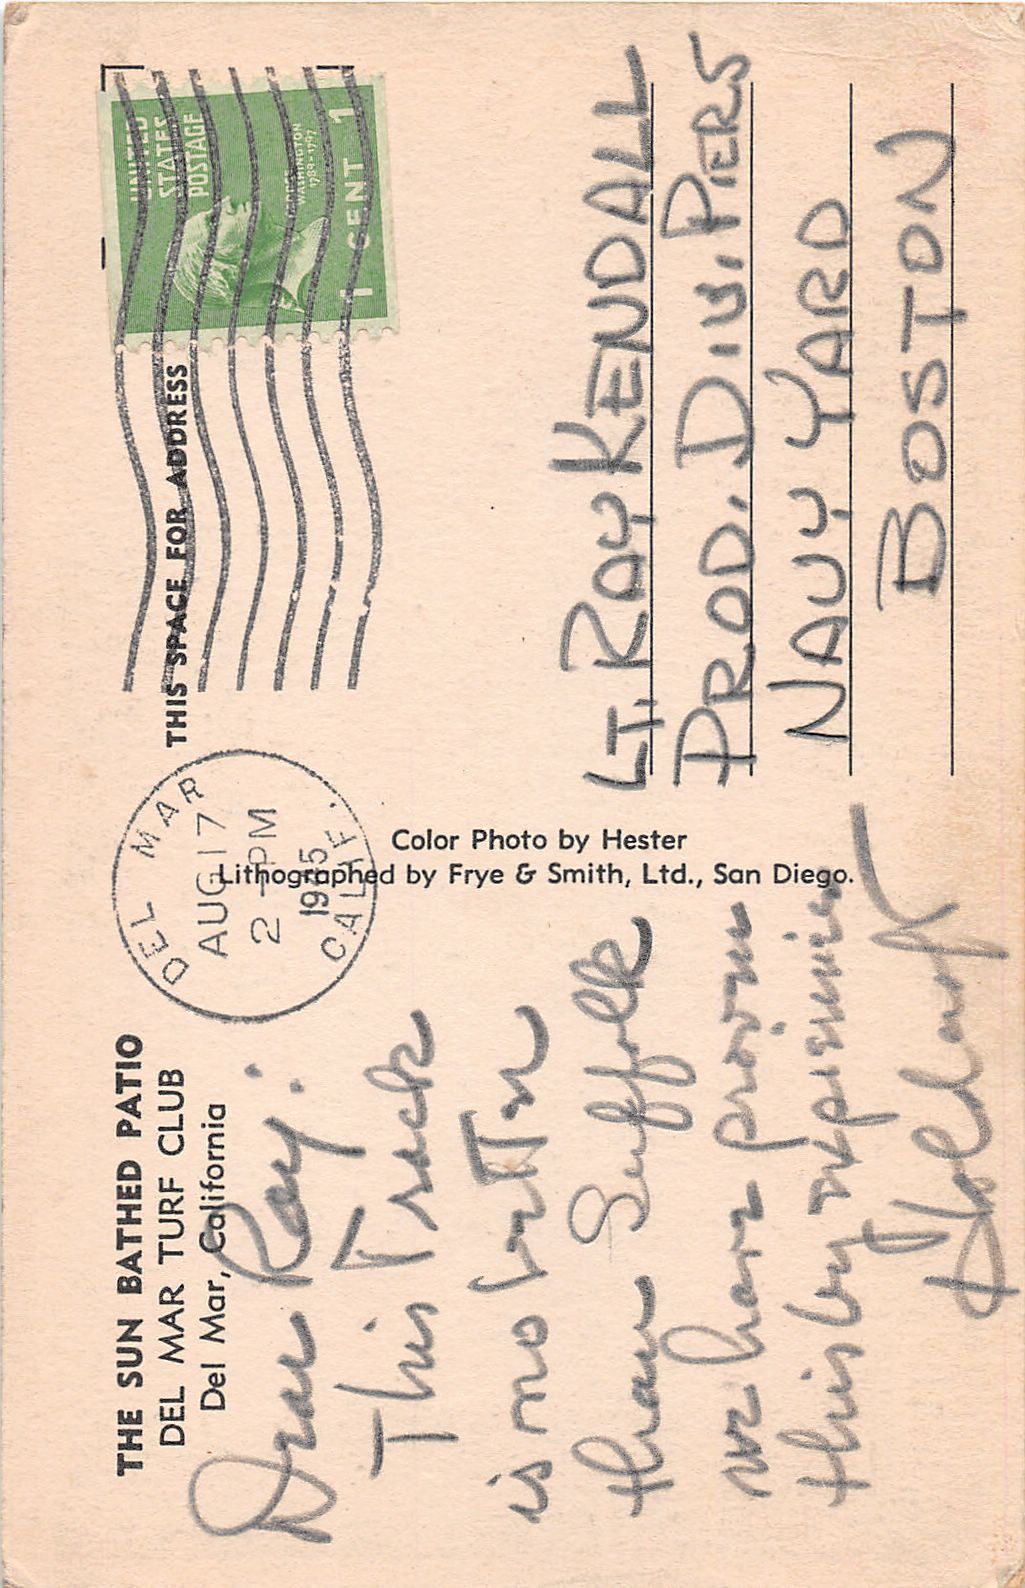 THE SUN BATHED PATIO
DEL MAR TURF CLUB
Del Mar, California
Dear Ray:
This Track
is no better
than Suffolk
we have proven
this by experience
Color Photo by Hester
Lithographed by Frye & Smith, Ltd., San Diego.
DEL MAR
AUG 17
2-PM
1945
CALIF.
THIS SPACE FOR ADDRESS
UNITED
STATES
POSTAGE
WASHINGTON
1789-1797
1 CENT 1
LT. RAY KENDALL
PROD. DIV. PIERS
NAVY YARD
BOSTON